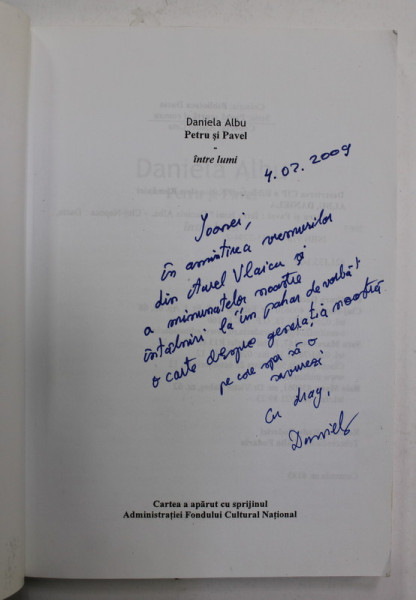 Daniela Albu
Petru și Pavel
-
între lumi
4.02.2009
Ioanei,
în amintirea vremurilor
din Aurel Vlaicu și
a minunatelor noastre
întâlniri la "un pahar de vorbă"
o carte despre generația noastră
pe care sper să o
savurezi
Cu drag,
Daniela
Cartea a apărut cu sprijinul
Administrației Fondului Cultural Național